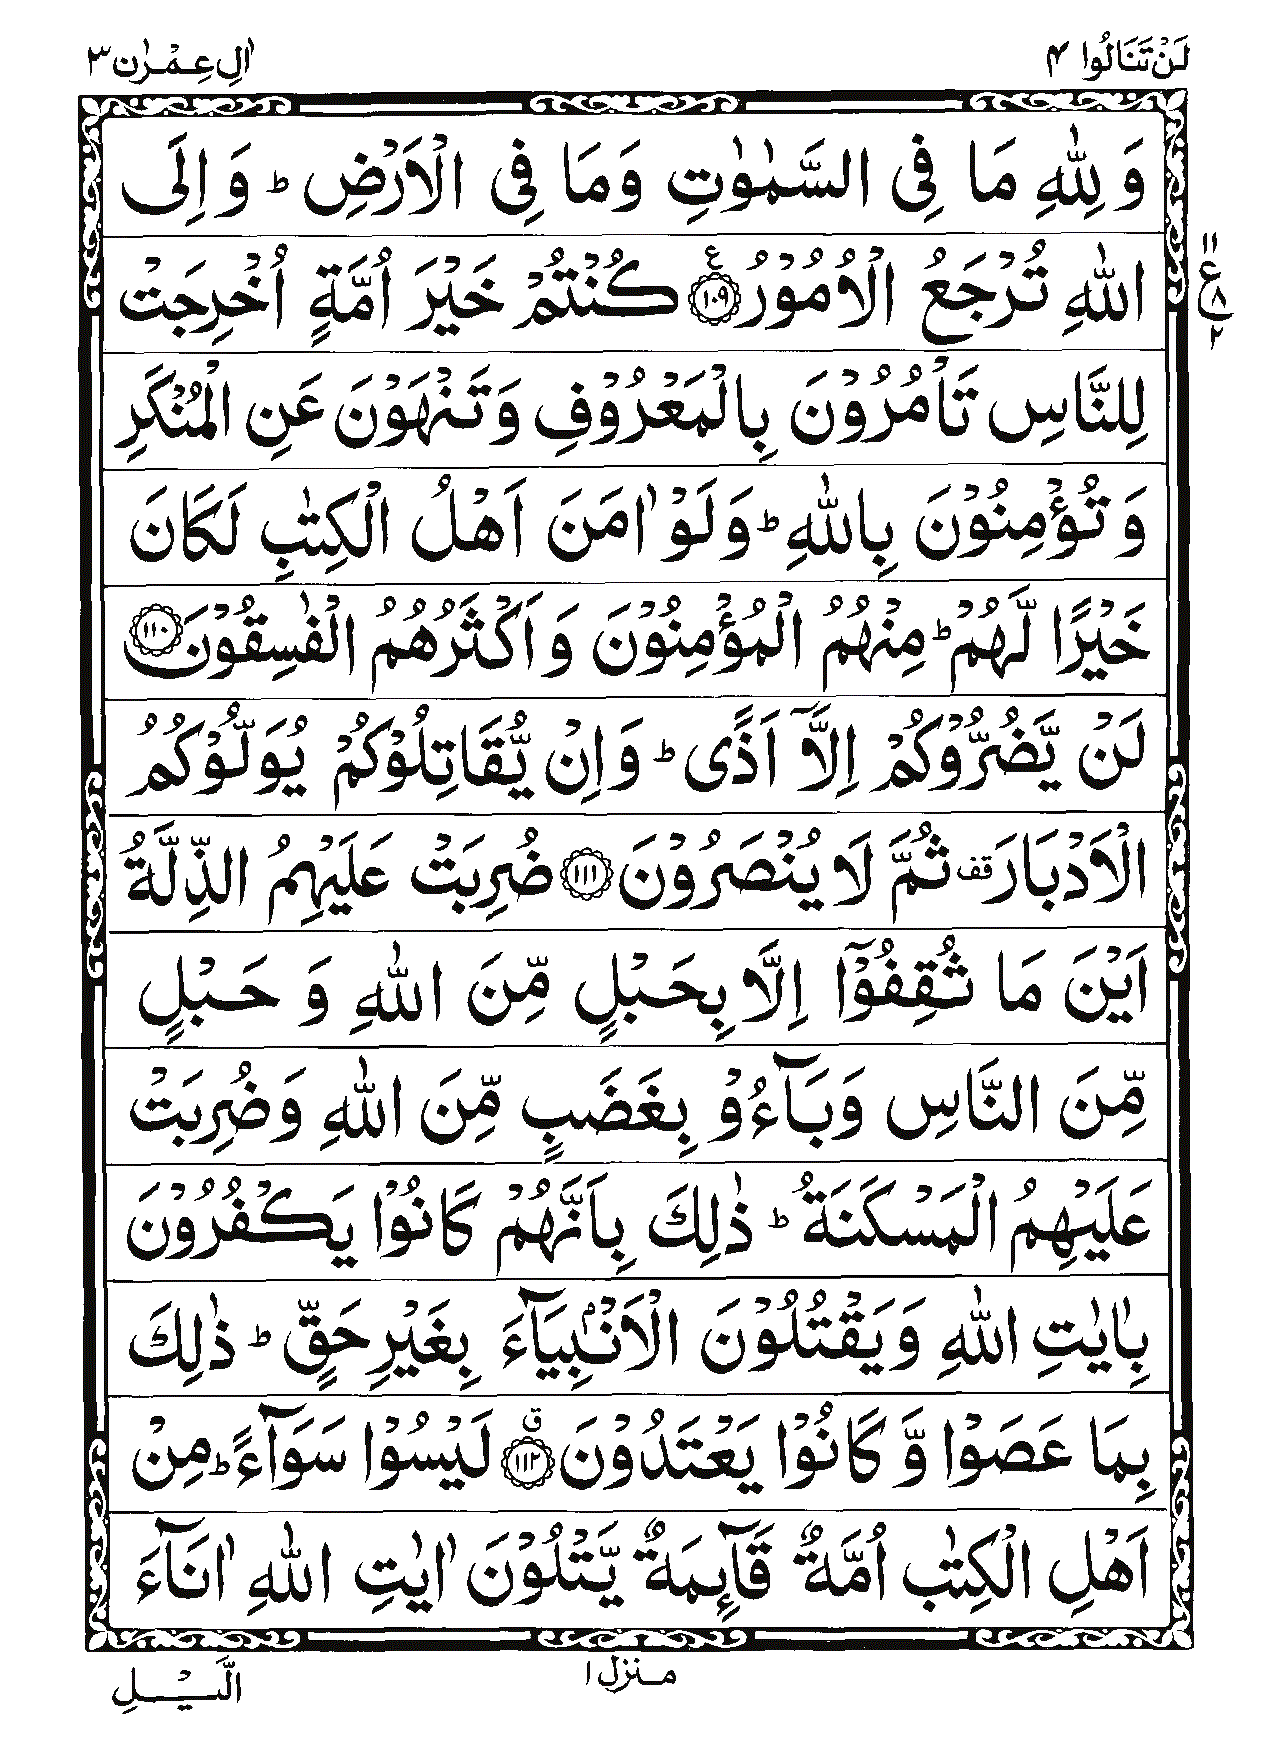 لَنْ تَنَالُوا ۴
اٰلِ عِمْرٰن ۳
وَ لِلّٰهِ مَا فِی السَّمٰوٰتِ وَمَا فِی الْاَرْضِ ؕ وَ اِلَی
اللّٰهِ تُرْجَعُ الْاُمُوْرُ ۧ﴿۱۰۹﴾ كُنْتُمْ خَیْرَ اُمَّةٍ اُخْرِجَتْ
۱۱
ع
۸
۲
لِلنَّاسِ تَاْمُرُوْنَ بِالْمَعْرُوْفِ وَ تَنْهَوْنَ عَنِ الْمُنْكَرِ
وَ تُؤْمِنُوْنَ بِاللّٰهِ ؕ وَلَوْ اٰمَنَ اَهْلُ الْكِتٰبِ لَكَانَ
خَیْرًا لَّهُمْ ؕ مِنْهُمُ الْمُؤْمِنُوْنَ وَ اَكْثَرُهُمُ الْفٰسِقُوْنَ ﴿۱۱۰﴾
لَنْ یَّضُرُّوْكُمْ اِلَّاۤ اَذًی ؕ وَاِنْ یُّقَاتِلُوْكُمْ یُوَلُّوْكُمُ
الْاَدْبَارَ ۫ ثُمَّ لَا یُنْصَرُوْنَ ﴿۱۱۱﴾ ضُرِبَتْ عَلَیْهِمُ الذِّلَّةُ
اَیْنَ مَا ثُقِفُوْۤا اِلَّا بِحَبْلٍ مِّنَ اللّٰهِ وَ حَبْلٍ
مِّنَ النَّاسِ وَبَآءُوْ بِغَضَبٍ مِّنَ اللّٰهِ وَضُرِبَتْ
عَلَیْهِمُ الْمَسْكَنَةُ ؕ ذٰلِكَ بِاَنَّهُمْ كَانُوْا یَكْفُرُوْنَ
بِاٰیٰتِ اللّٰهِ وَیَقْتُلُوْنَ الْاَنْۢبِیَآءَ بِغَیْرِ حَقٍّ ؕ ذٰلِكَ
بِمَا عَصَوْا وَّ كَانُوْا یَعْتَدُوْنَ ۗ﴿۱۱۲﴾ لَیْسُوْا سَوَآءً ؕ مِنْ
اَهْلِ الْكِتٰبِ اُمَّةٌ قَآىِٕمَةٌ یَّتْلُوْنَ اٰیٰتِ اللّٰهِ اٰنَآءَ
منزل ۱
الَّیْلِ